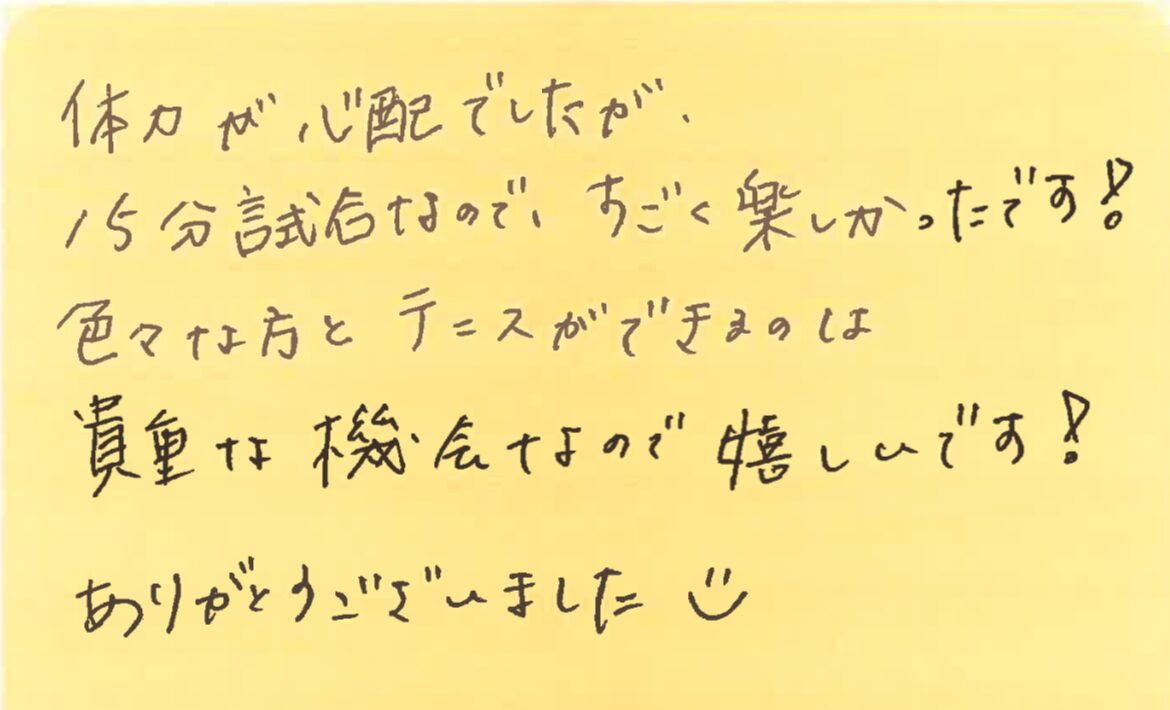 体力が心配でしたが、
15分試合なので、すごく楽しかったです!
色々な方とテニスができるのは
貴重な機会なので嬉しいです!
ありがとうございました